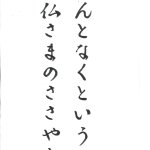 んとなくという
仏さまのささや